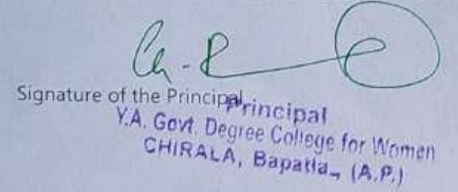 Signature of the Principal
Principal
Y.A. Govt. Degree College for Women
CHIRALA, Bapatla, (A.P.)